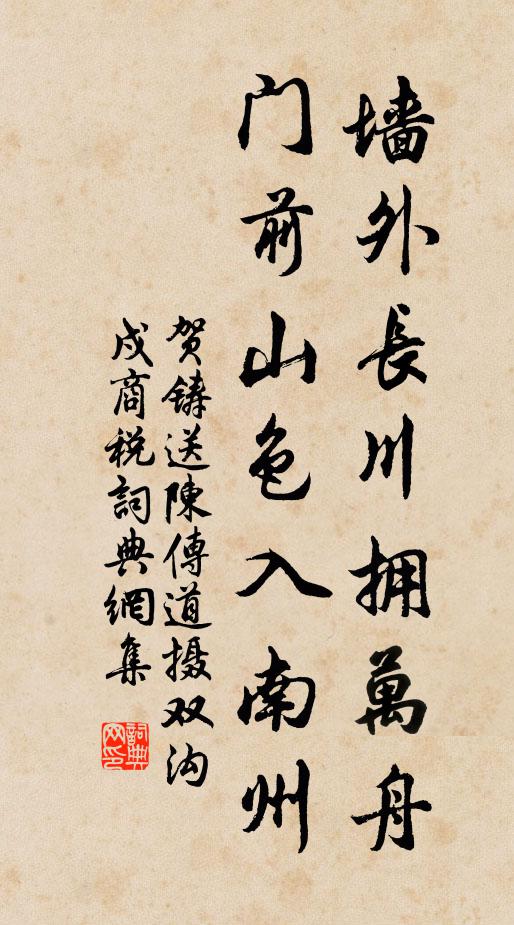 墙外長川拥萬舟
门前山色入南州
贺鑄送陳傳道摄双沟
戍商税詞典網集
詞典网印